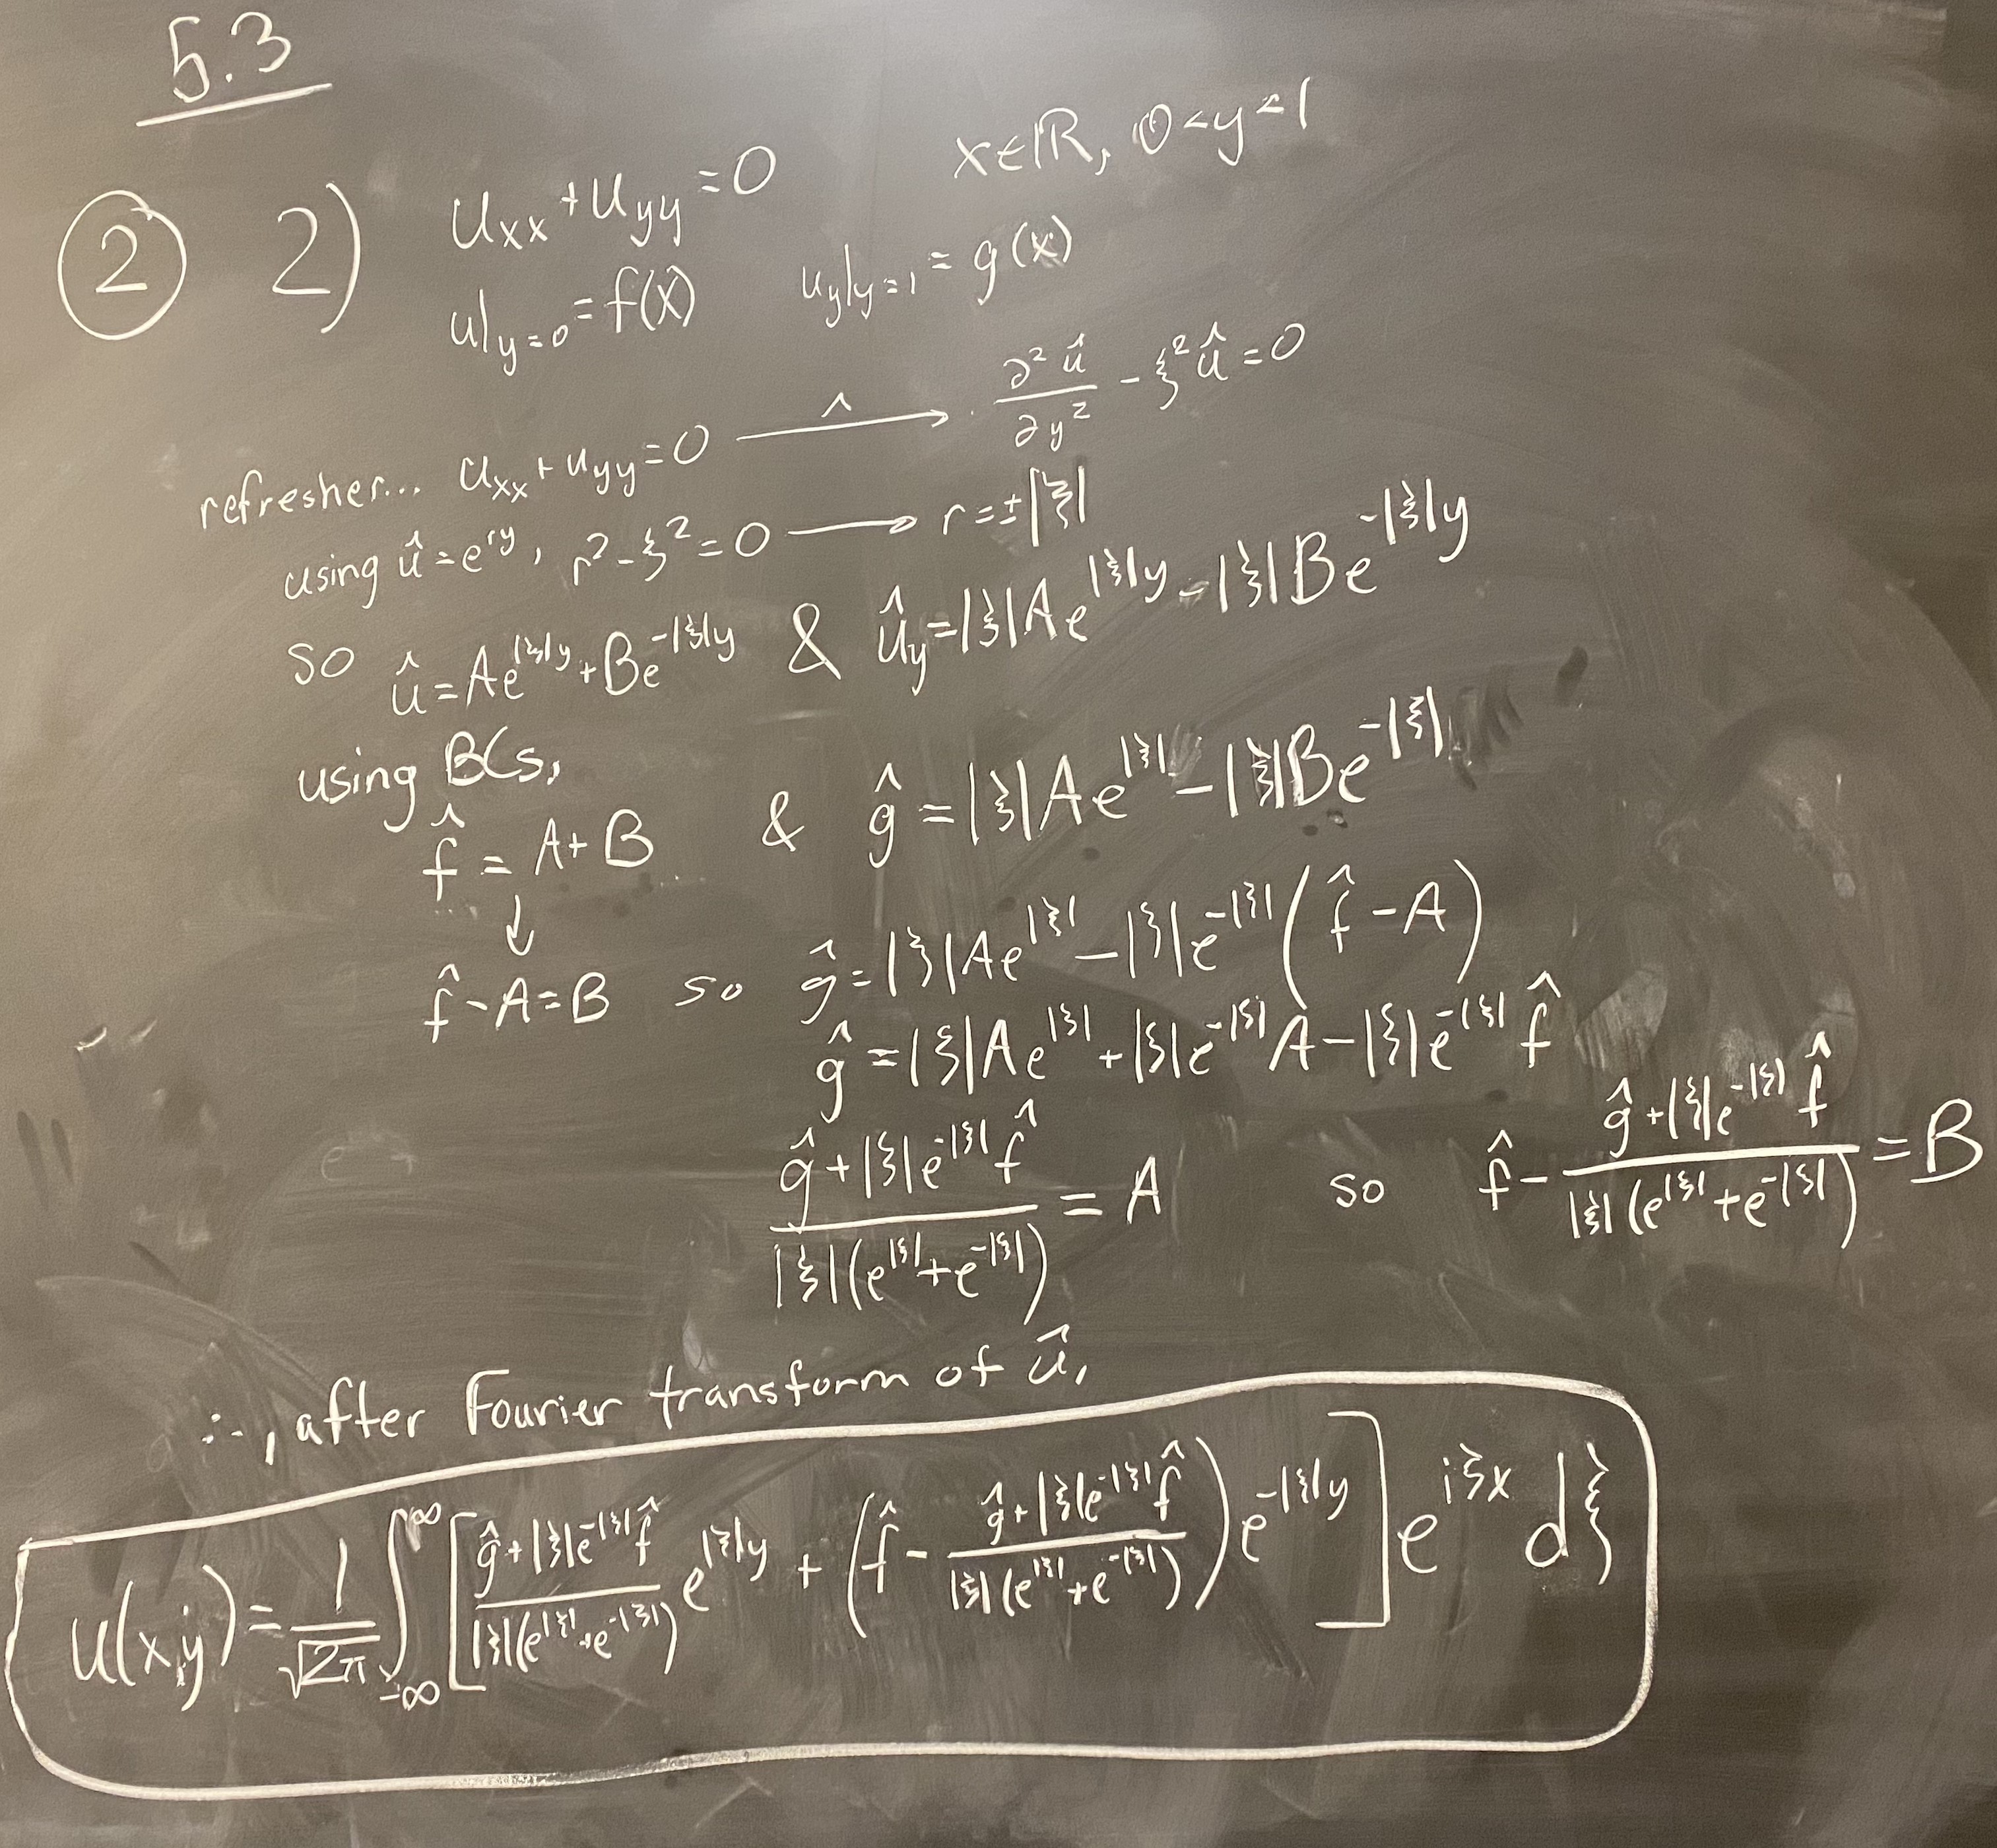 5.3
② 2) u_xx + u_yy = 0 x∈ℝ, 0<y<1
u|_{y=0} = f(x) u_y|_{y=1} = g(x)
refresher... u_xx + u_yy = 0 —^→ ∂²û/∂y² - ξ²û = 0
using û = e^{ry}, r² - ξ² = 0 ⟶ r = ±|ξ|
so û = Ae^{|ξ|y} + Be^{-|ξ|y} & û_y = |ξ|Ae^{|ξ|y} - |ξ|Be^{-|ξ|y}
using BCs,
f̂ = A + B & ĝ = |ξ|Ae^{|ξ|} - |ξ|Be^{-|ξ|}
↓
f̂ - A = B so ĝ = |ξ|Ae^{|ξ|} - |ξ|e^{-|ξ|}(f̂ - A)
ĝ = |ξ|Ae^{|ξ|} + |ξ|e^{-|ξ|}A - |ξ|e^{-|ξ|}f̂
(ĝ + |ξ|e^{-|ξ|}f̂)/(|ξ|(e^{|ξ|} + e^{-|ξ|})) = A so f̂ - (ĝ + |ξ|e^{-|ξ|}f̂)/(|ξ|(e^{|ξ|} + e^{-|ξ|})) = B
∴, after Fourier transform of û,
u(x,y) = 1/√2π ∫_{-∞}^{∞} [(ĝ + |ξ|e^{-|ξ|}f̂)/(|ξ|(e^{|ξ|} + e^{-|ξ|})) e^{|ξ|y} + (f̂ - (ĝ + |ξ|e^{-|ξ|}f̂)/(|ξ|(e^{|ξ|} + e^{-|ξ|})))e^{-|ξ|y}] e^{iξx} dξ